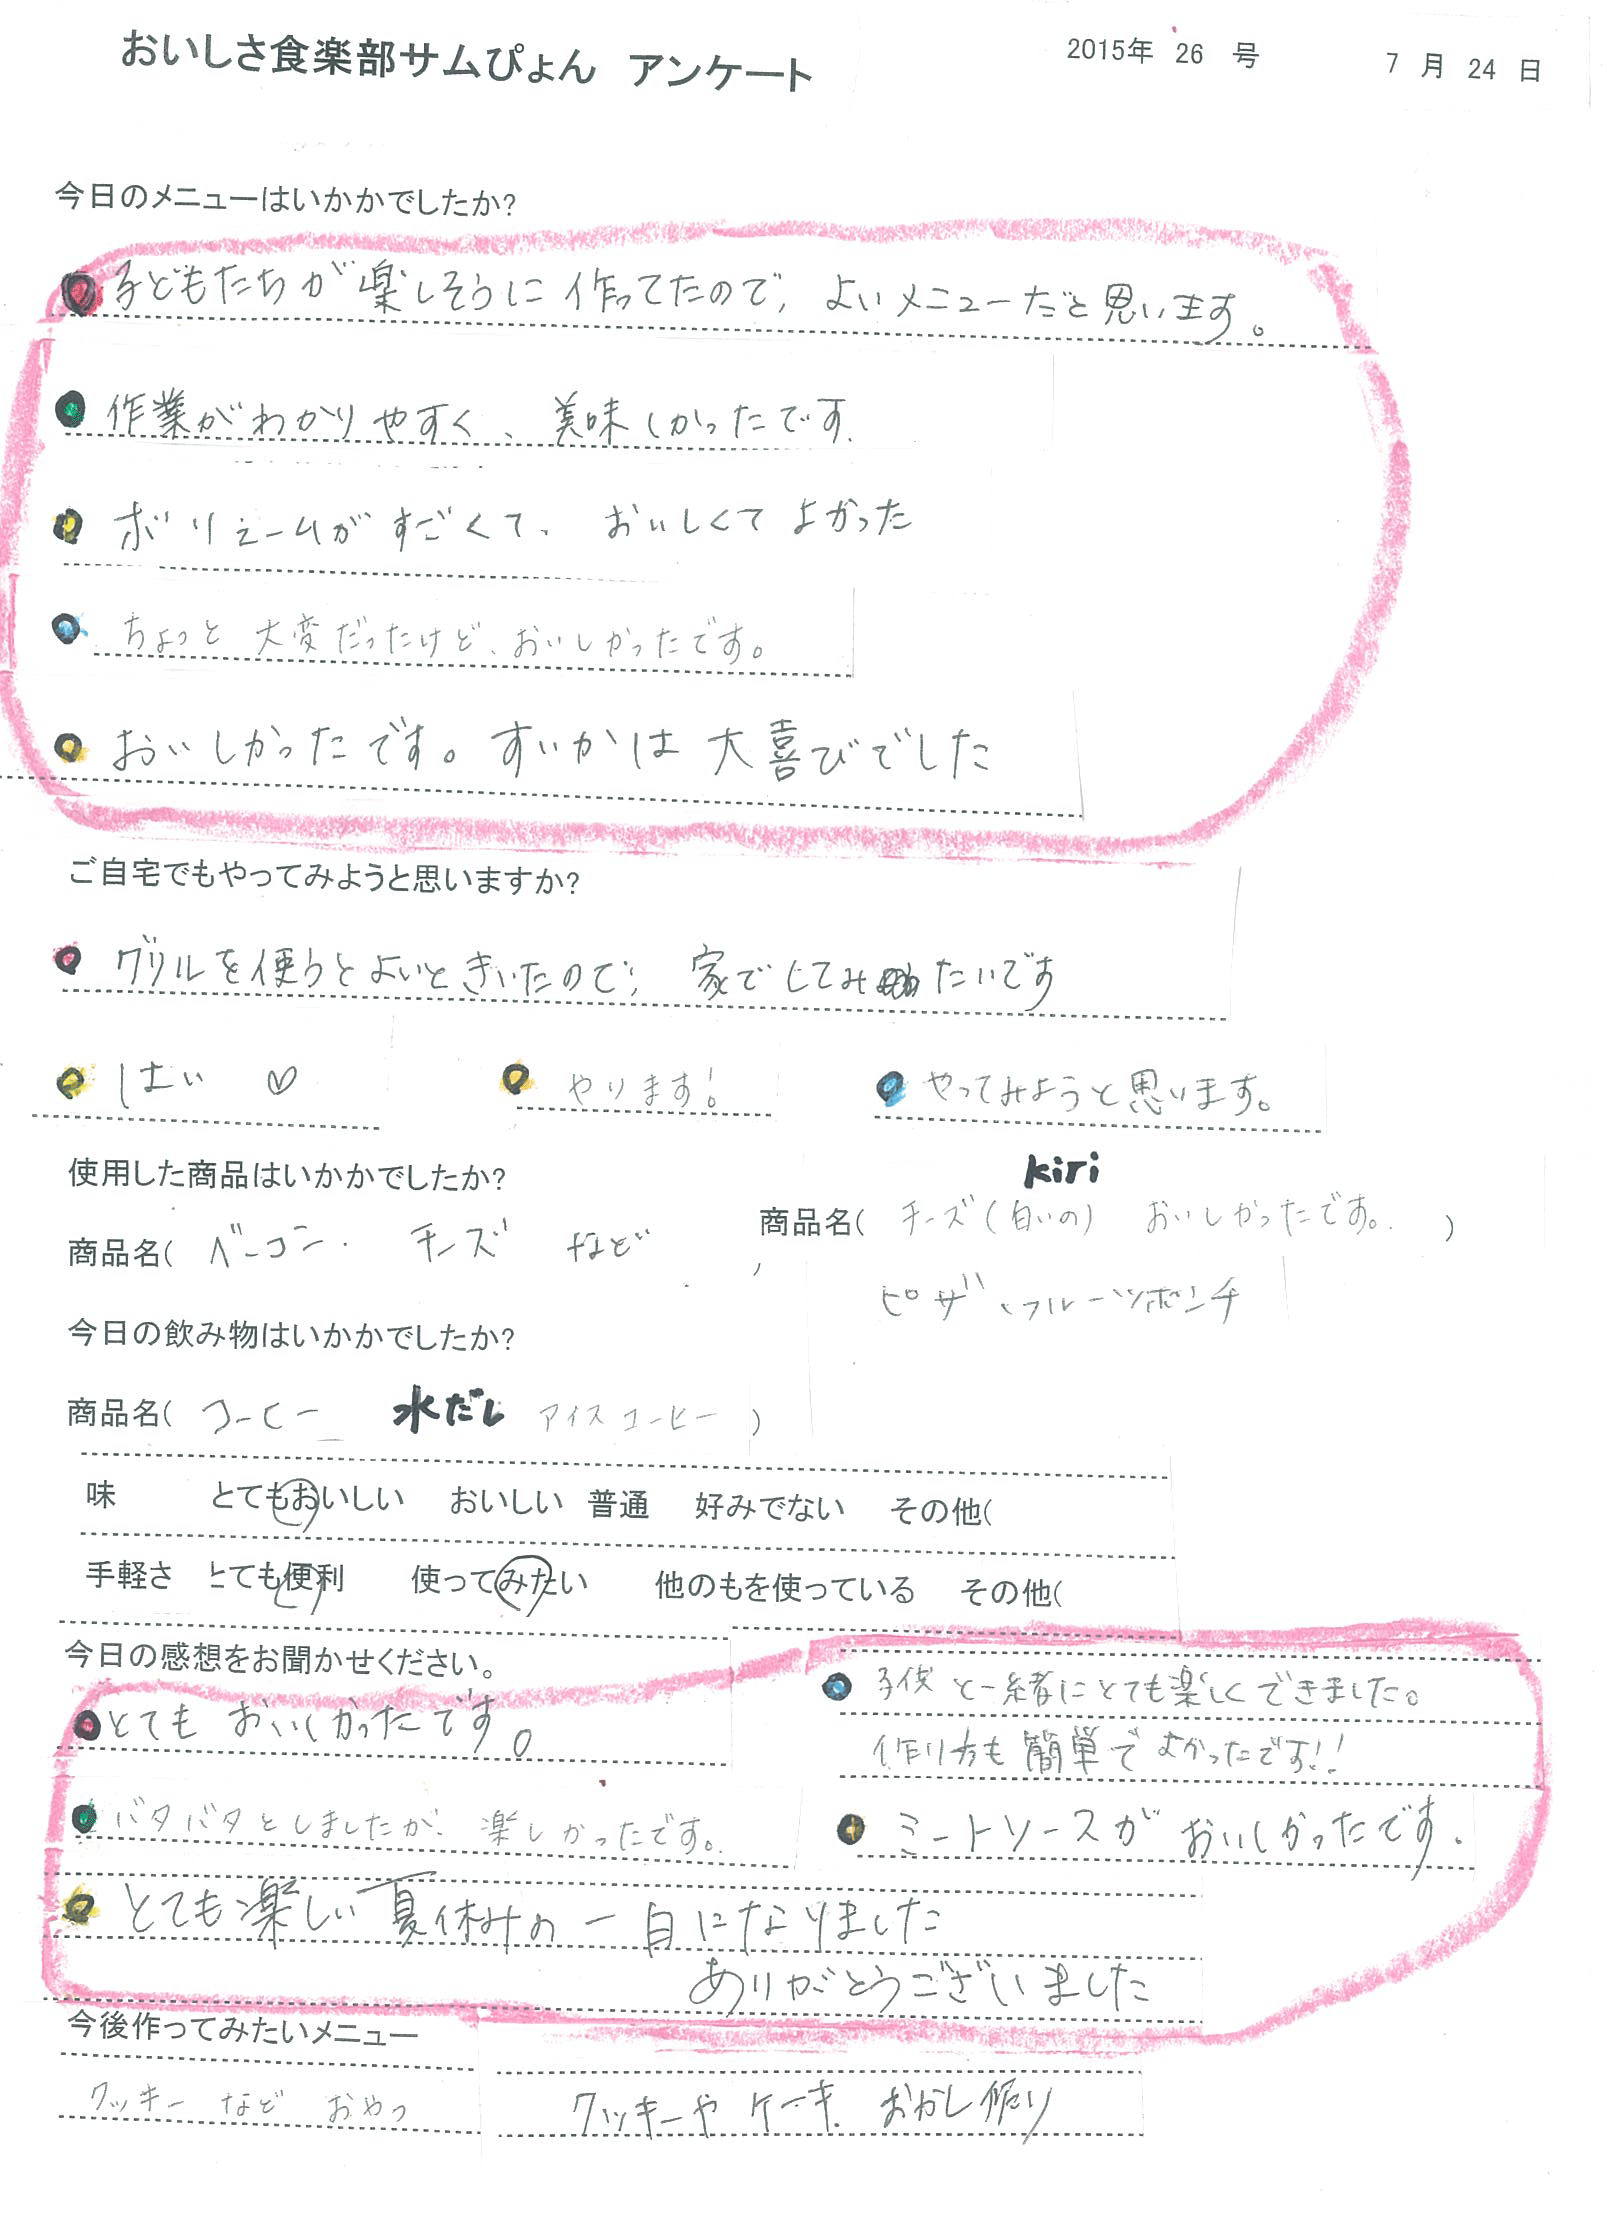 おいしさ食楽部サムぴょん アンケート 2015年 26 号 7 月 24 日
今日のメニューはいかかでしたか?
子どもたちが楽しそうに作ってたので、よいメニューだと思います。
作業がわかりやすく、美味しかったです.
ボリュームがすごくて、おいしくてよかった
ちょっと大変だったけど、おいしかったです。
おいしかったです。すいかは大喜びでした
ご自宅でもやってみようと思いますか?
グリルを使うとよいときいたので、家でしてみたいです
はい ♡ やります! やってみようと思います。
使用した商品はいかかでしたか?
kiri
商品名( ベーコン. チーズ など ) 商品名( チーズ(白いの) おいしかったです。 )
ピザ、フルーツポンチ
今日の飲み物はいかかでしたか?
商品名( コーヒー 水だし アイスコーヒー )
味 とてもおいしい おいしい 普通 好みでない その他(
手軽さ とても便利 使ってみたい 他のもを使っている その他(
今日の感想をお聞かせください。
とても おいしかったです。
バタバタとしましたが、楽しかったです。
とても楽しい夏休みの一日になりました
ありがとうございました
子供と一緒にとても楽しくできました。
作り方も簡単でよかったです!!
ミートソースがおいしかったです.
今後作ってみたいメニュー
クッキー など おやつ クッキーや ケーキ. おかし作り